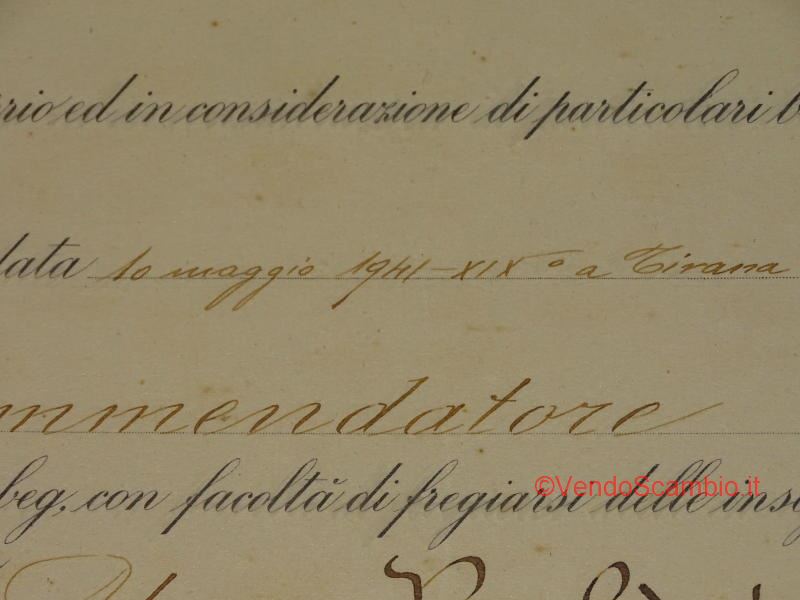 rio ed in considerazione di particolari b
data 10 maggio 1941-XIX° a Tirana
mmendatore
beg, con facoltà di fregiarsi delle inse
©VendoScambio.it